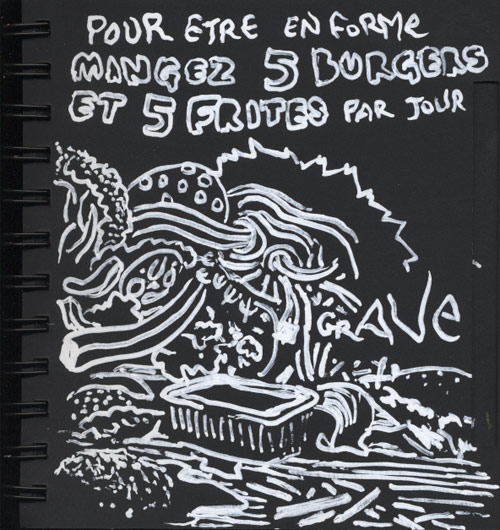 POUR ETRE EN FORME
MANGEZ 5 BURGERS
ET 5 FRITES PAR JOUR
GRAVE